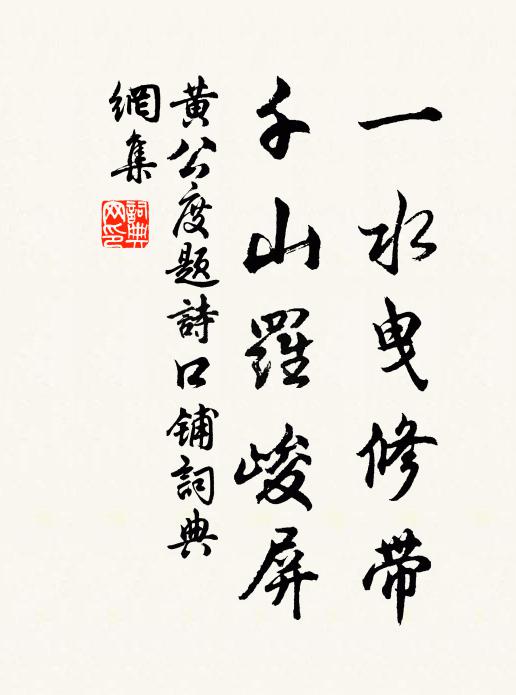 一水曳修带
千山羅峻屏
黄公度題詩口铺詞典
網集
詞典
网印